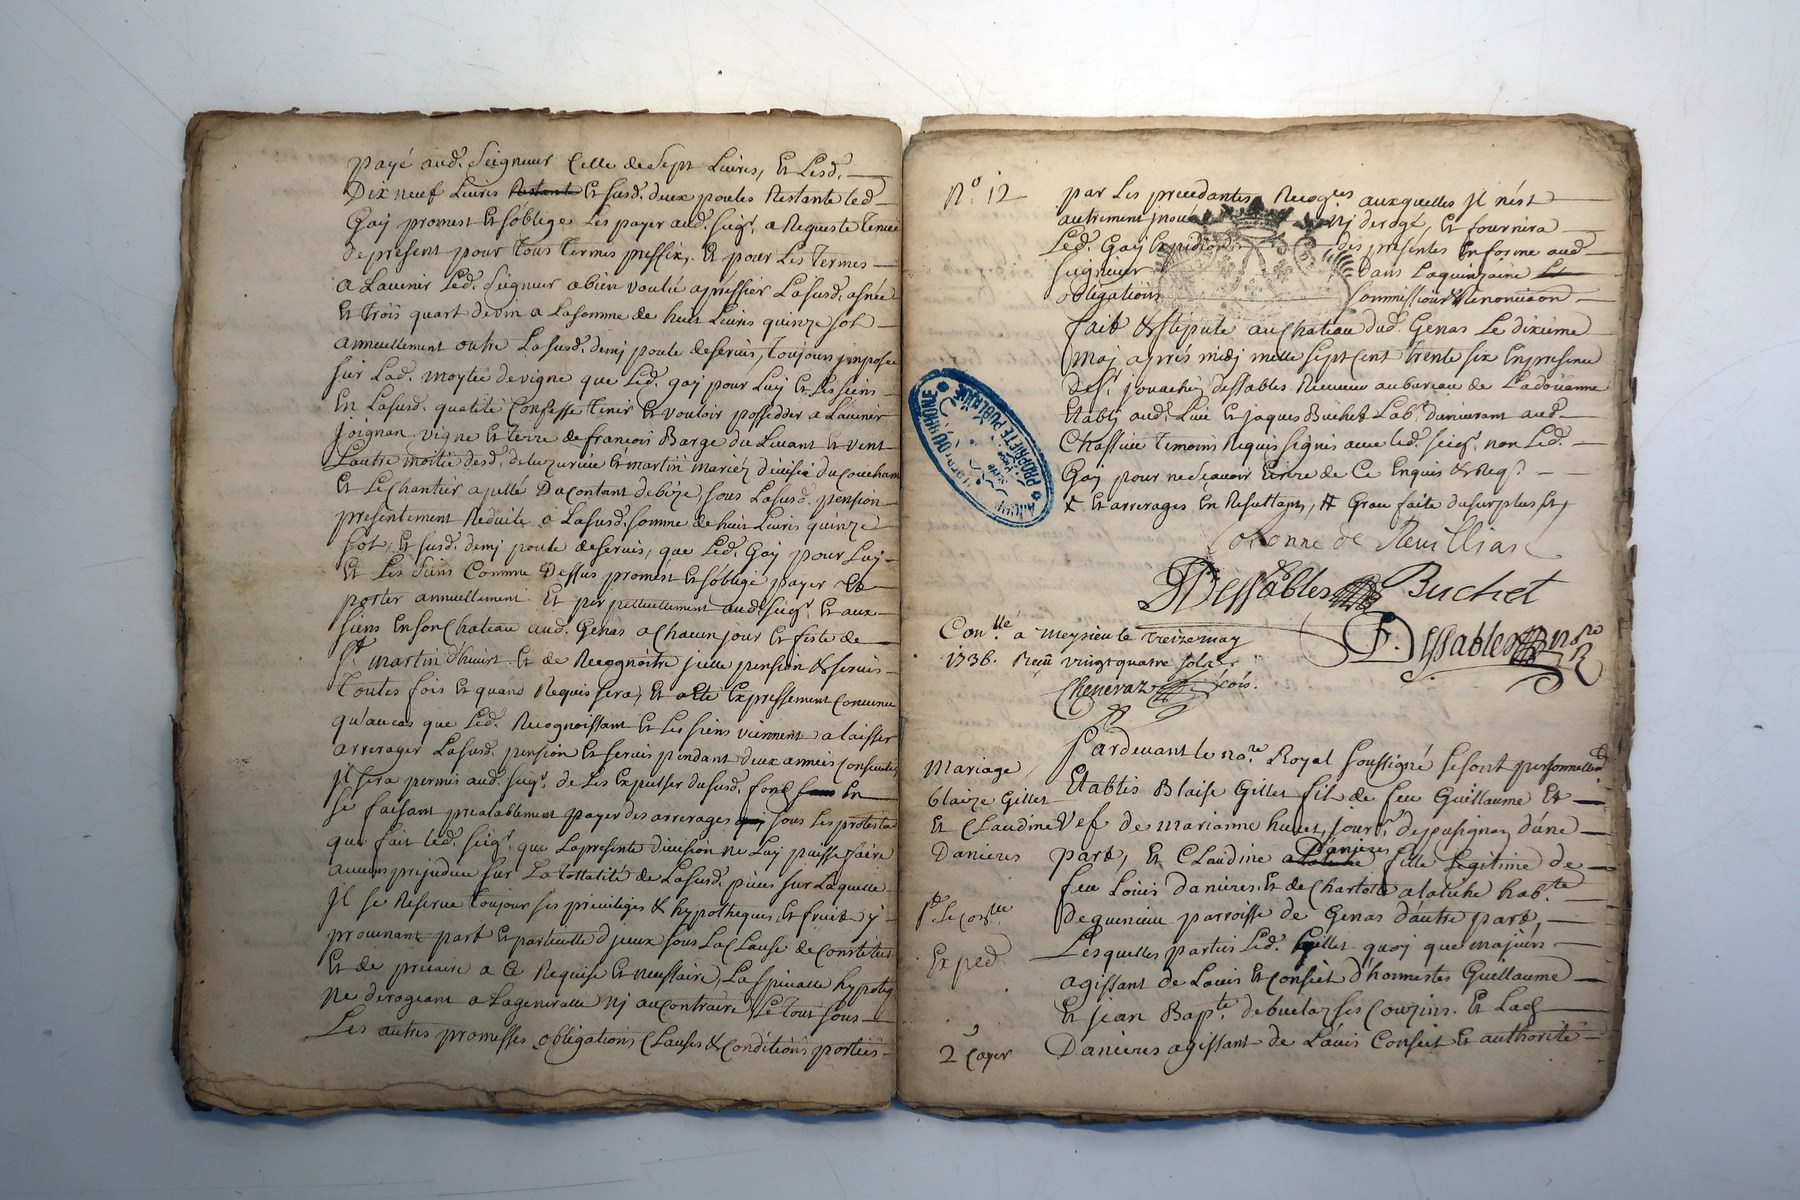 payé aud. Seigneur Celle de Sept Livres, Et Lesd.
Dix neuf Livres Restante Et susd. deux poules Restante led
Gaÿ promest Et s'oblige Les payer aud. seigr. a Requeste Tenüe
de présent pour Tous Termes preffix, Et pour Les Termes
a Lavenir Led. Seigneur a bien voulü apréssier La susd. asnée
Et Trois quart de vin a La somme de huit Livres quinze sol
annuellement outre La susd. demj poule de servis, Toujours jmposée
sur Lad. moytié de vigne que Led. gaÿ pour Luy Et Les siens
En La susd. qualité Confesse Tenir Et vouloir posséder a Lavenir
Joignan vigne Et terre de francois Barge du Levant Et vent
L'autre moitié desd. Et martin divisée du couchan
Et Le Chantier apellé Ducontant debize) sous La susd. pension
présentement Reduite a La susd. somme de huit Livres quinze
sol, Et susd. demj poule de servis, que Led. Gaÿ pour Luy
Et Les siens Comme Dessus promest Et s'oblige payer Et
porter annuellement Et perpetuellement aud. seigr. Et aux
siens En son Chateau aud. Genas a chacun jour Et feste de
St. martin d'huict Et de Recognoitre jcelle pension & servis
Toutes fois Et quand Requis sera, Et a Eté Expressement Convenu
qu'au cas que Led. Recognoissant Et Les siens viennent a laisser
arrerager La susd. pension Et servis pendant deux années Consecutes
jl sera permis aud. seigr. de Les Expulser du susd. fond En
se faisant prealablement payer des arrerages sous Les protesta
que fait led. seigr. que La presente division ne Luy puisse faire
aucun prejudice sur La tottalité de La susd. piece sur Laquelle
Jl se Reserve Toujour ses privileges & hypotheques, Et fruits y
provenant part Et parcelle d'jceux sous La Clause de Constitut
Et de precaire a Ce Requise Et necessaire, La specialle hypoteq
ne derogeant a La generalle nj au contraire, Le Tout sous
Les autres promesses obligations Clauses & conditions portées
No. 12
par Les precedantes Recogces. auxquelles jl n'est
autrement jnnové nj derogé, Et fournira
Led. Gaÿ Expedion des presentes En forme aud
seigneur dans La quinzaine
obligations soummissions & Renonciaon
fait & stipulé au Chateau dud. Genas Le dixieme
may après midj mille sept cent trente six En presence
de sr. jouachin dessables Receveur au bureau de La doüanne
Etably aud. Lieu Et jaques Buchet Labr. demeurant aud.
Chassieu Temoins Requis signés avec led. seigr. non Led.
Gaÿ pour ne sçavoir Ecrire de Ce Enquis & Req.
& Et arrerages En Resultants, # Grace faite du surplus, Et,
Dessables Buchet
F. Dessables nore
Conllé a meysieu le treize may
1736. Reçû vingt quatre sols
Chenevaz cois.
PROPRIÉTÉ PUBLIQUE
DU RHÔNE
Mariage
blaize Gillet
Et Claudine
Danieres
Expéd.
2e Cayer
Pardevant le nore. Royal soussigné se sont personnellemt
Etablis Blaise Gillet fils de feu Guillaume Et
Vef de marianne huet, journr. de pusignan d'une
part, Et Claudine Danieres fille Legitime de
feu Louis danieres Et de Charlotte alatiche habte
de quincieu parroisse de Genas d'autre part,
Lesquelles parties Led. Gillet quoj que majeur
agissant de Lavis Et conseil d'honnestes Guillaume
Et jean Bapte. ses Couzins. Et Lad
Danieres agissant de L'avis Conseil Et authorité